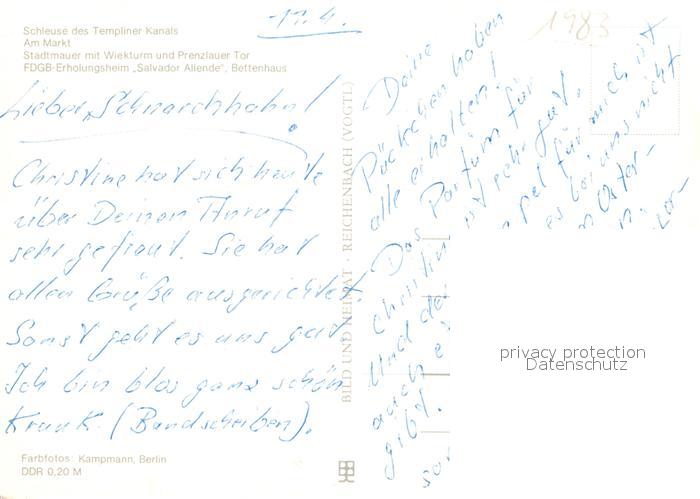 Schleuse des Templiner Kanals
Am Markt
Stadtmauer mit Wiekturm und Prenzlauer Tor
FDGB-Erholungsheim „Salvador Allende", Bettenhaus
1983
Lieber Schnarchhahn!
Christine hat sich heute
über Deinen Anruf
sehr gefreut. Sie hat
allen Grüße ausgerichtet.
Sonst geht es uns gut
Ich bin blos ganz schön
krank. (Bandscheiben).
Deine
Päckchen haben
alle erhalten!
Das Parfüm für
Christin ist sehr gut.
Und der pel für mich ist
auch e es bei uns nicht
gibt. Oster-
BILD UND HEIMAT · REICHENBACH (VOGTL)
privacy protection
Datenschutz
Farbfotos: Kampmann, Berlin
DDR 0,20 M